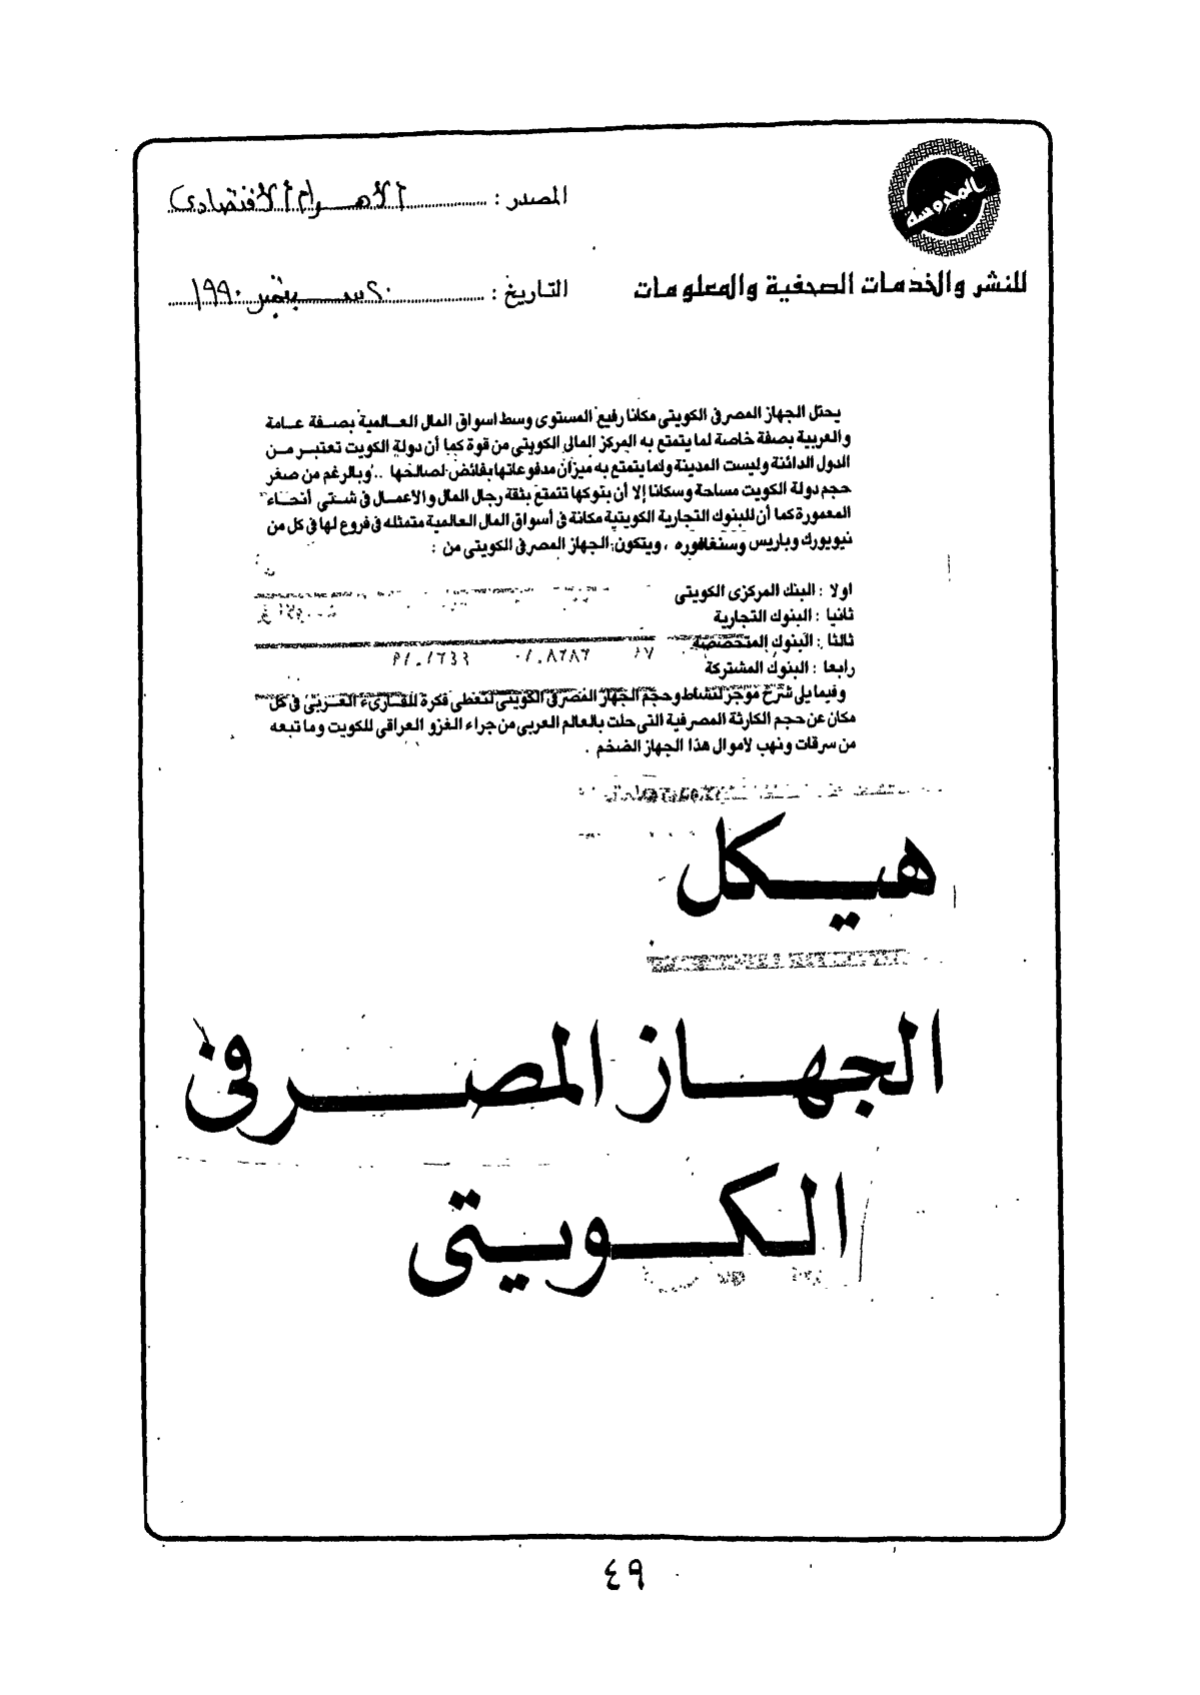 المحروسة
المصدر : الأهرام الاقتصادى
للنشر والخدمات الصحفية والمعلومات
التاريخ : ٢٠ سبتمبر ١٩٩٠
يحتل الجهاز المصرفى الكويتى مكانا رفيع المستوى وسط اسواق المال العالمية بصفة عامة
والعربية بصفة خاصة لما يتمتع به المركز المالى الكويتى من قوة كما أن دولة الكويت تعتبر من
الدول الدائنة وليست المدينة ولما يتمتع به ميزان مدفوعاتها بفائض لصالحها .. وبالرغم من صغر
حجم دولة الكويت مساحة وسكانا إلا أن بنوكها تتمتع بثقة رجال المال والأعمال فى شتى أنحاء
المعمورة كما أن للبنوك التجارية الكويتية مكانة فى أسواق المال العالمية متمثله فى فروع لها فى كل من
نيويورك وباريس وسنغافوره ، ويتكون الجهاز المصرفى الكويتى من :
اولا : البنك المركزى الكويتى
ثانيا : البنوك التجارية
ثالثا : البنوك المتخصصة
رابعا : البنوك المشتركة
وفيما يلى شرح موجز لنشاط وحجم الجهاز المصرفى الكويتى لتعطى فكرة للقارىء العربى فى كل
مكان عن حجم الكارثة المصرفية التى حلت بالعالم العربى من جراء الغزو العراقى للكويت وما تبعه
من سرقات ونهب لاموال هذا الجهاز الضخم .
هيكل
الجهاز المصرفى
الكويتى
٤٩